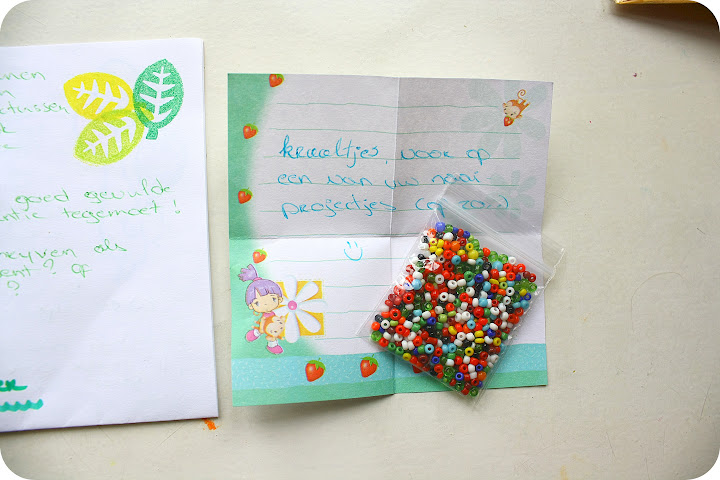 nen
goed gevulde
ntie tegemoet!
als
ent? of
?
kraaltjes, voor op
een van uw naai
projectjes (of zo...)